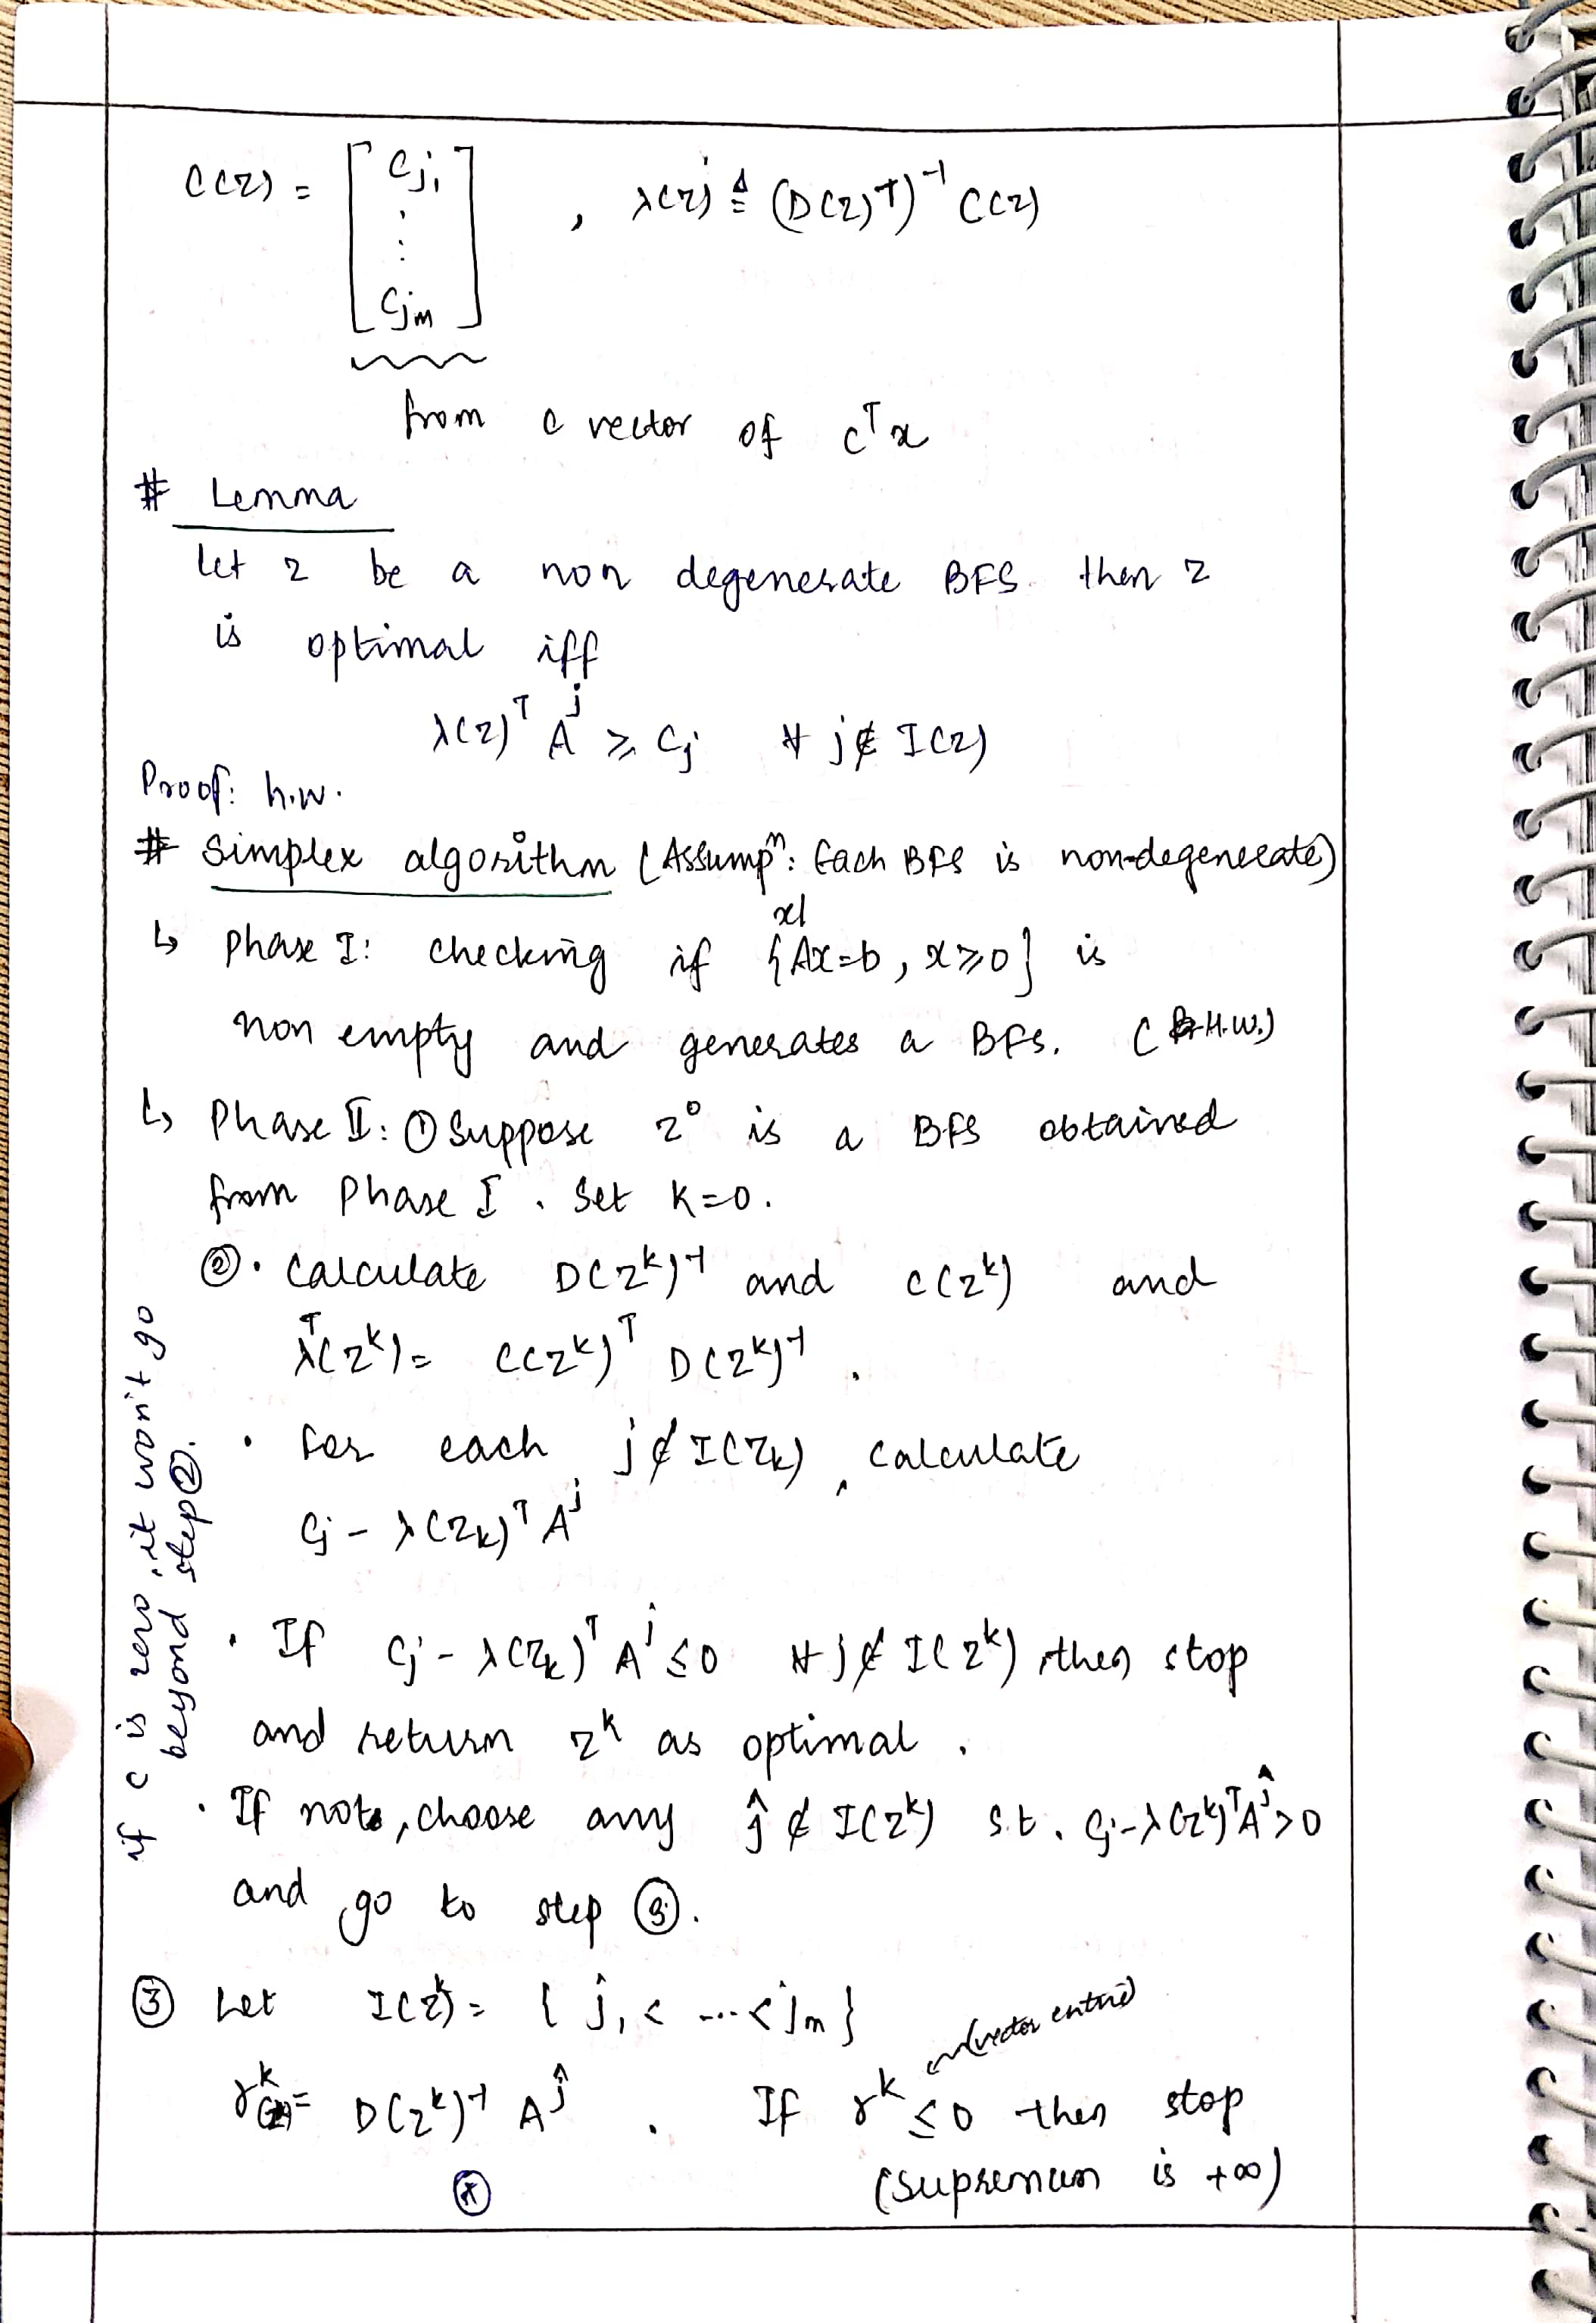 C(z) = [ Cj₁ ⋮ Cjm ] , λ(z) ≜ (D(z)ᵀ)⁻¹ C(z)
from c vector of cᵀx
# Lemma
let z be a non degenerate BFS then z
is optimal iff
λ(z)ᵀ Aʲ ≥ Cj ∀ j ∉ I(z)
Proof: h.w.
# Simplex algorithm (Assumpⁿ: Each BFS is non-degenerate)
↳ Phase I: Checking if {x| Ax=b, x≥0} is
non empty and generates a BFS. (H.W.)
↳ Phase II: ① Suppose z⁰ is a BFS obtained
from Phase I. Set k=0.
②. Calculate D(zᵏ)⁻¹ and C(zᵏ) and
λᵀ(zᵏ) = C(zᵏ)ᵀ D(zᵏ)⁻¹.
• For each j ∉ I(zₖ), calculate
Cj - λ(zₖ)ᵀ Aʲ
• If Cj - λ(zₖ)ᵀ Aʲ ≤ 0 ∀ j ∉ I(zᵏ), then stop
and return zᵏ as optimal.
• If not, choose any ĵ ∉ I(zᵏ) s.t. Cj - λ(zᵏ)ᵀ A^ĵ > 0
and go to step ③.
if c is zero, it won't go
beyond step ②.
③ Let I(zᵏ) = { j₁ < ... < jm }
(vector entries)
γᵏ = D(zᵏ)⁻¹ A^ĵ . If γᵏ ≤ 0 then stop
(supremum is +∞)